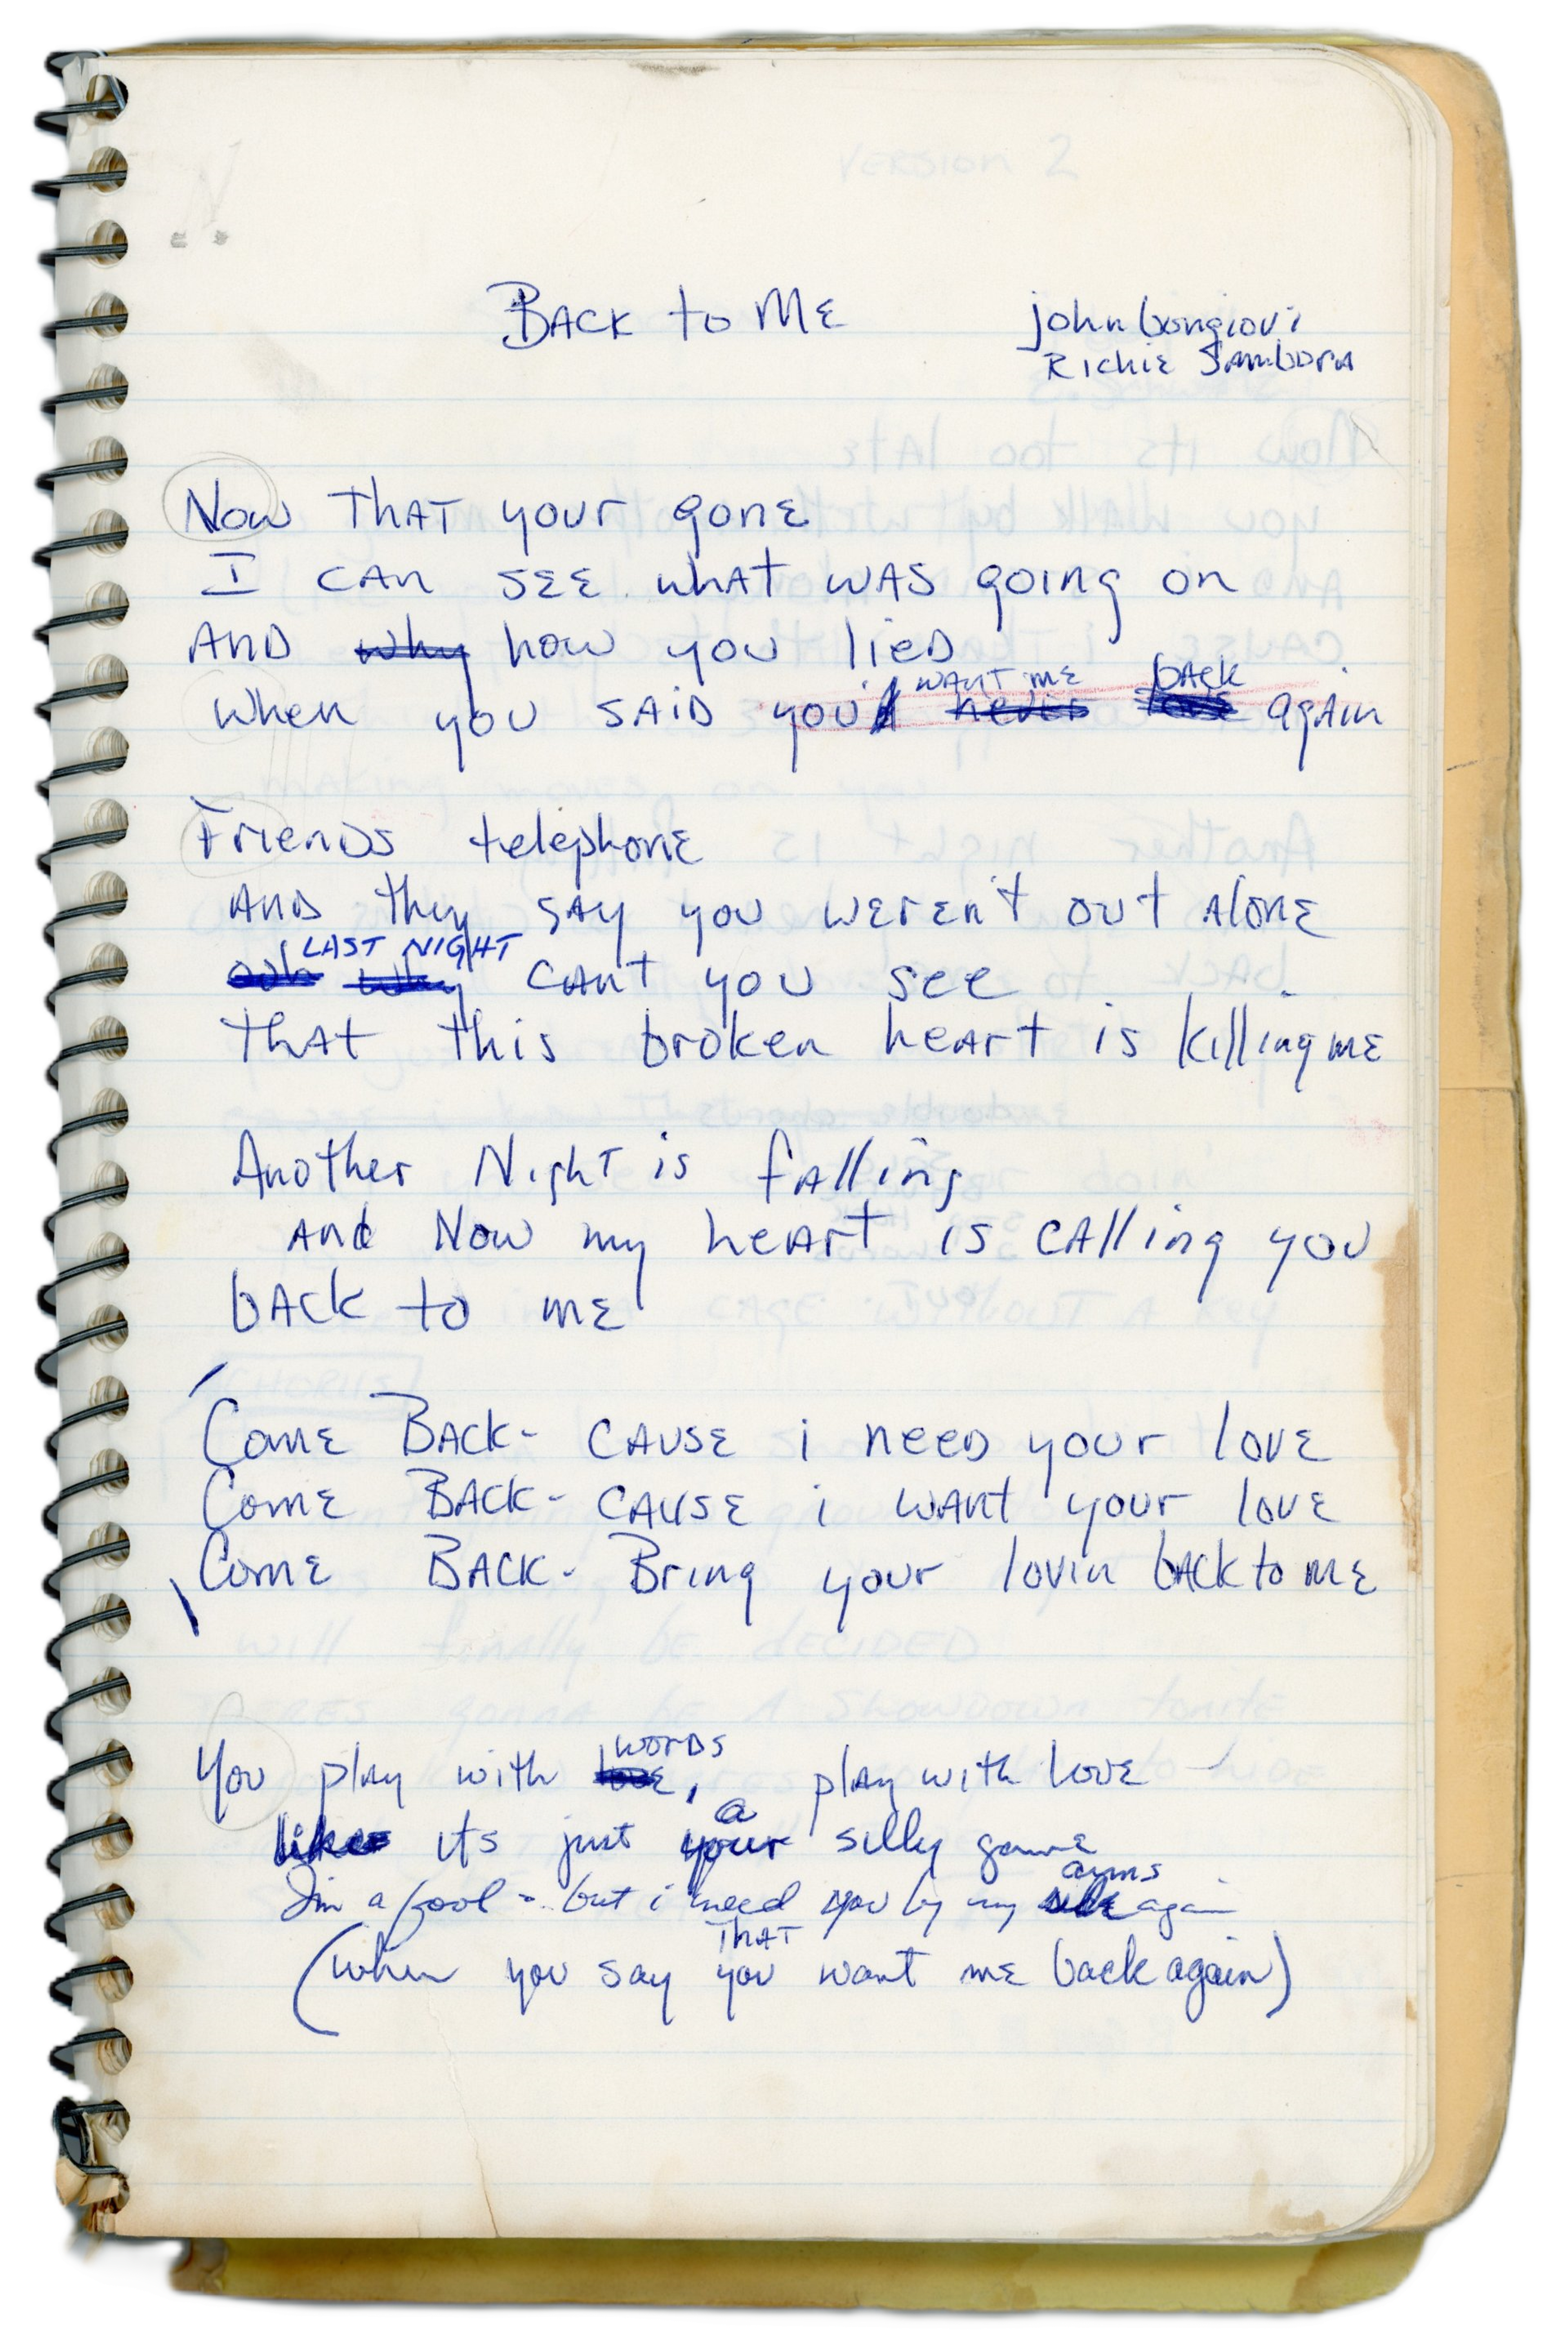 VERSION 2
BACK to ME
john bongiovi
Richie Sambora
Now THAT your gone
I CAN SEE what WAS going on
AND why how you lieD
WANT ME back
when you SAiD you'd never again
Friends telephone
AND they SAY you weren't out Alone
LAST NIGHT
ooh why CANt you see
THAT this broken heArt is killing me
Another Night is fAlling
And Now my heArt is CAlling you
bAck to me
Come BACK- CAUSE i neeD your love
Come BACK- CAUSE i WANt your love
Come BACK- Bring your lovin bACk to me
words
You play with love, play with love
a
like its just your silly game
arms
I'm a fool - but i need you by my side again
THAT
(when you say you want me back again)